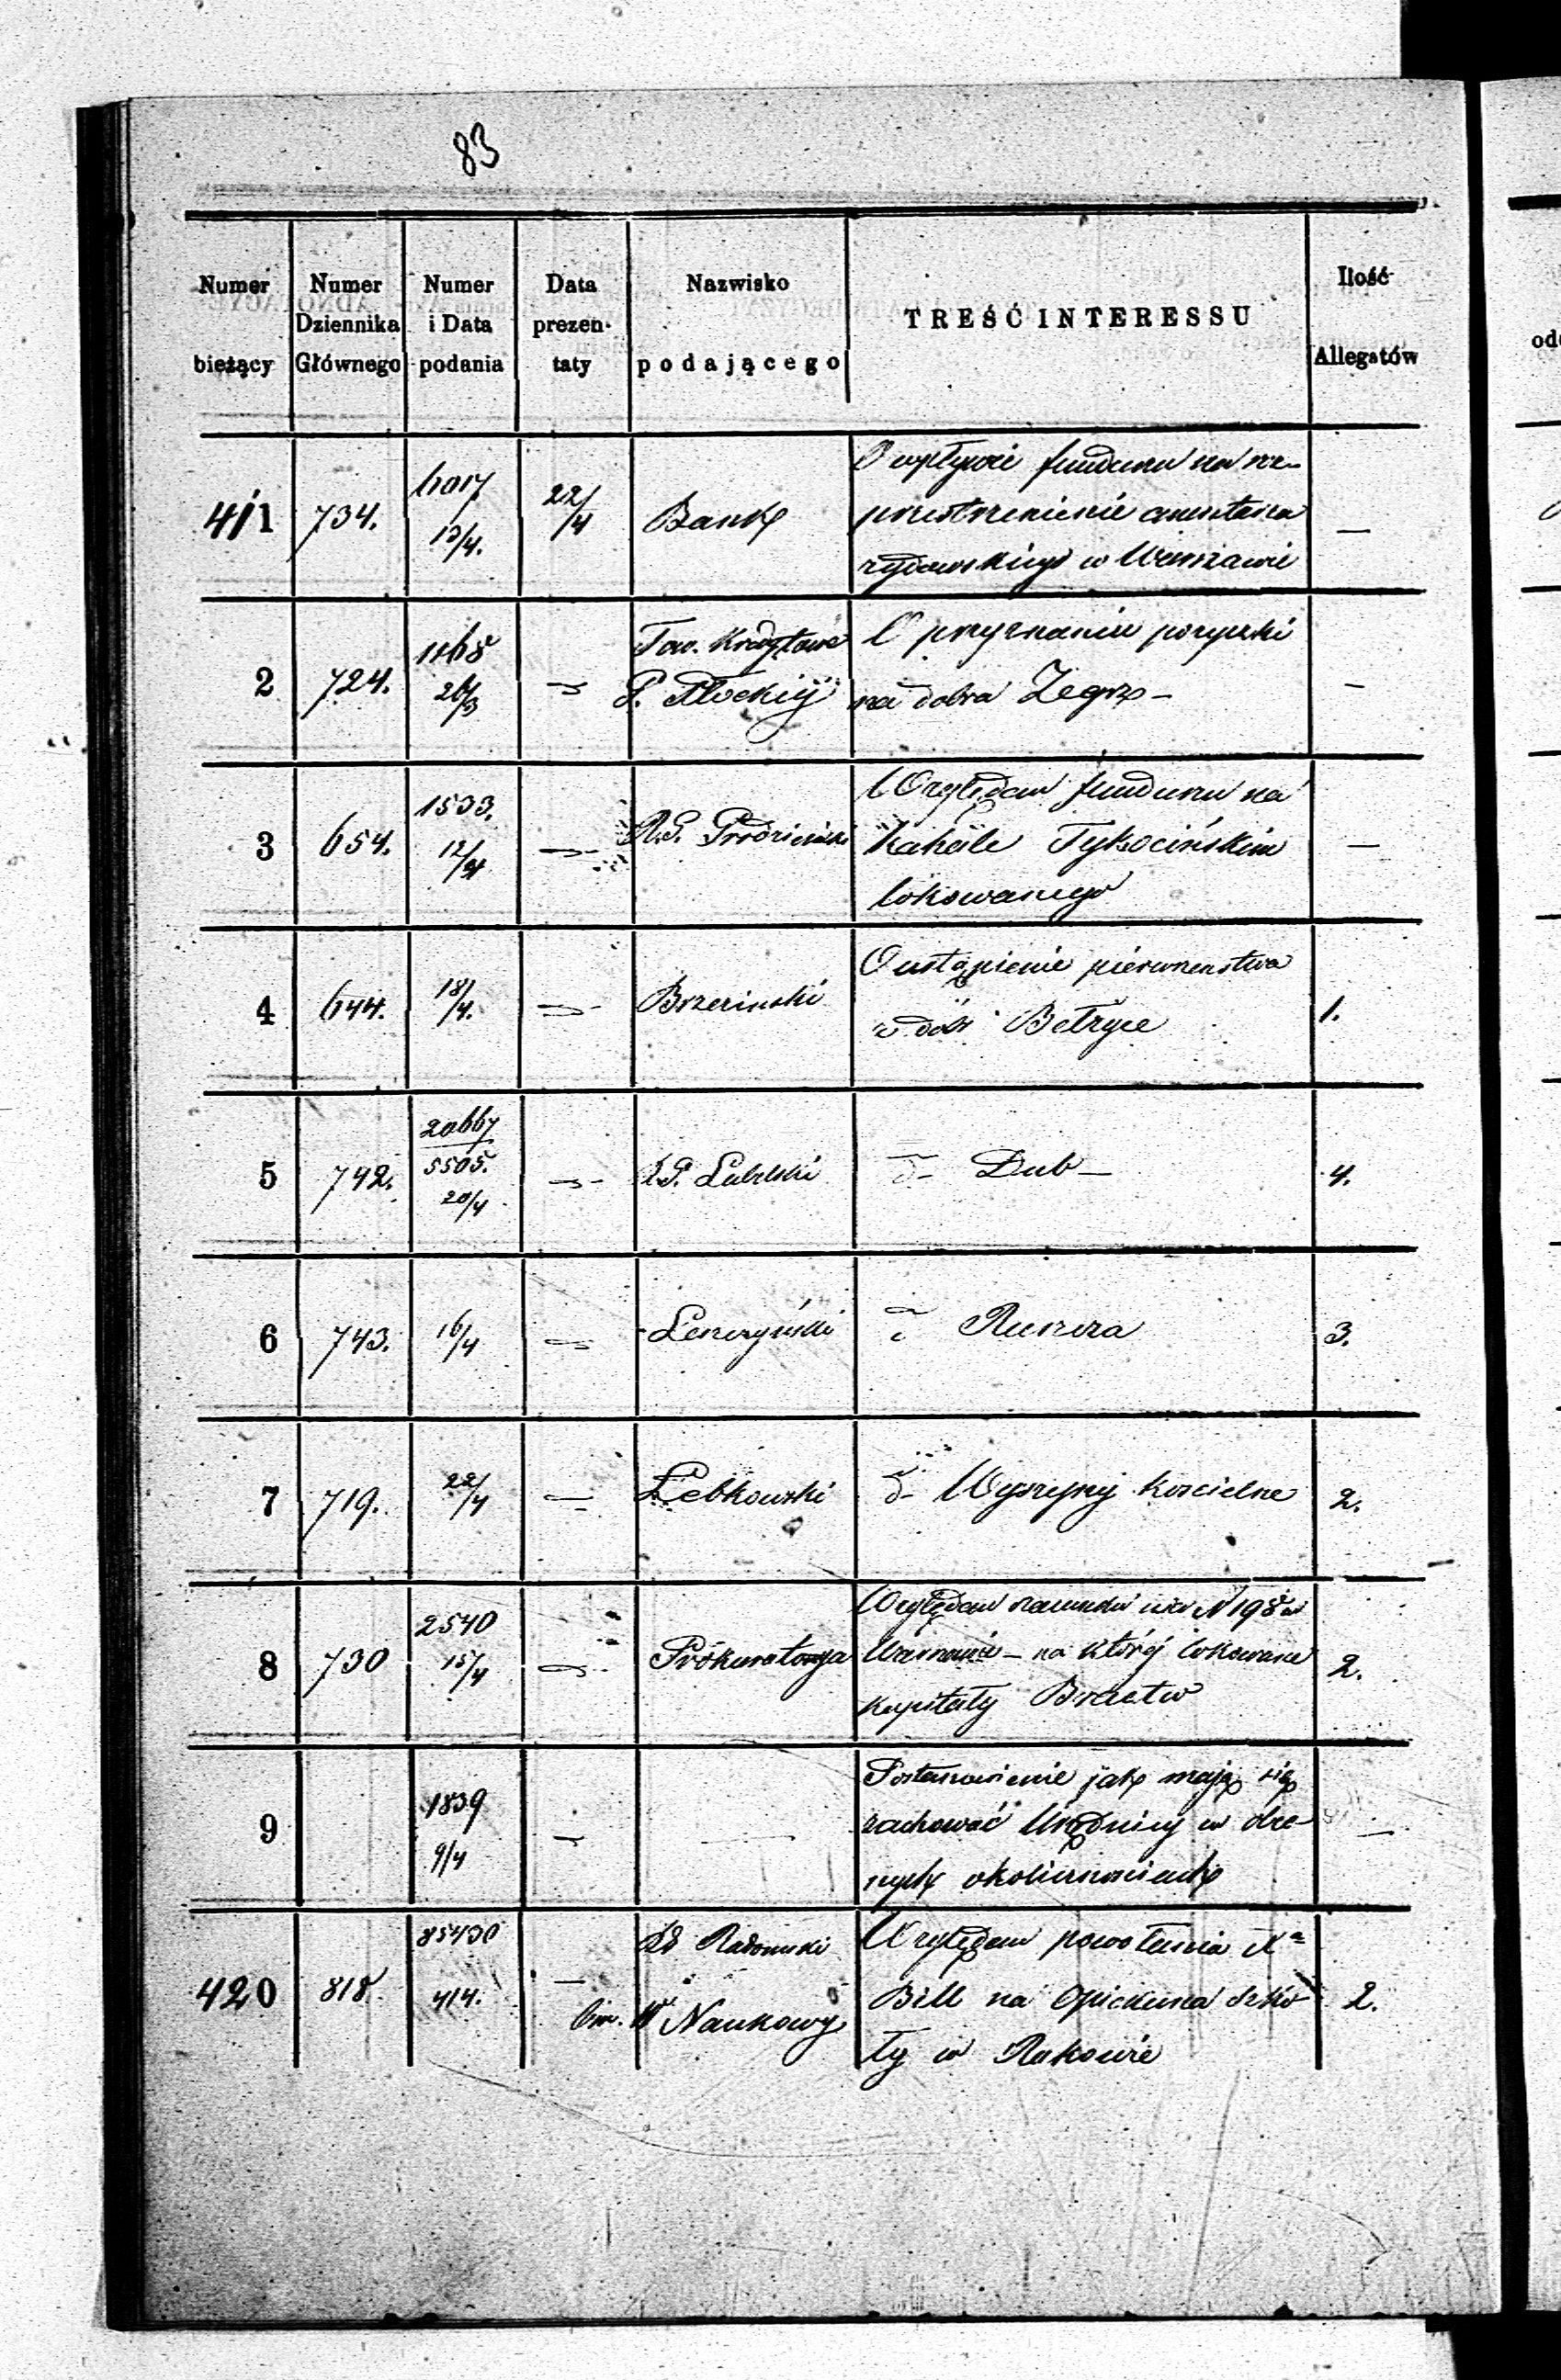 83
Numer bieżący | Numer Dziennika Głównego | Numer i Data podania | Data prezentaty | Nazwisko podającego | TREŚĆ INTERESSU | Ilość Allegatów
411 | 734. | 6017 13/4. | 22/4 | Bank | O wpływie funduszu na roz-
przestrzenienie cmentarza
żydowskiego w Warszawie | —
2 | 724. | 1168 26/3 | Tow. Kredytowe | O przyznaniu pożyczki
P. Płockiéy | na dobra Zegrz — | —
3 | 654. | 1533. 12/4 | R. G. Grodzieński | Względem funduszu na
Kahale Tykocińskim | —
lokowanego
4 | 644. | 18/4. | Brzeziński | O ustąpienie pierwszeństwa
z dóbr Bełżyce | 1.
5 | 742. | 20667 5505. 20/4 | R. G. Lubelski | d— Dub — | 4.
6 | 743. | 16/4 | Leszczyński | Ruszcza | 3.
7 | 719. | 22/4 | Łebkowski | d— Wyszyny Kościelne | 2.
8 | 730 | 2540 15/4 | Prokuratorya | Względem szacunku N 198 w
Warszawie — na któréj lokowane | 2.
kapitały Bractw
9 | 1839 9/4 | Postanowienie jak mają się
zachować Urzędnicy w obe-
cnych okolicznościach | —
420 | 818. | 85430 414. | Radomski | Względem powołania X
Naukowy | Bill na Opiekuna Szko- | 2.
ły w Rakowie